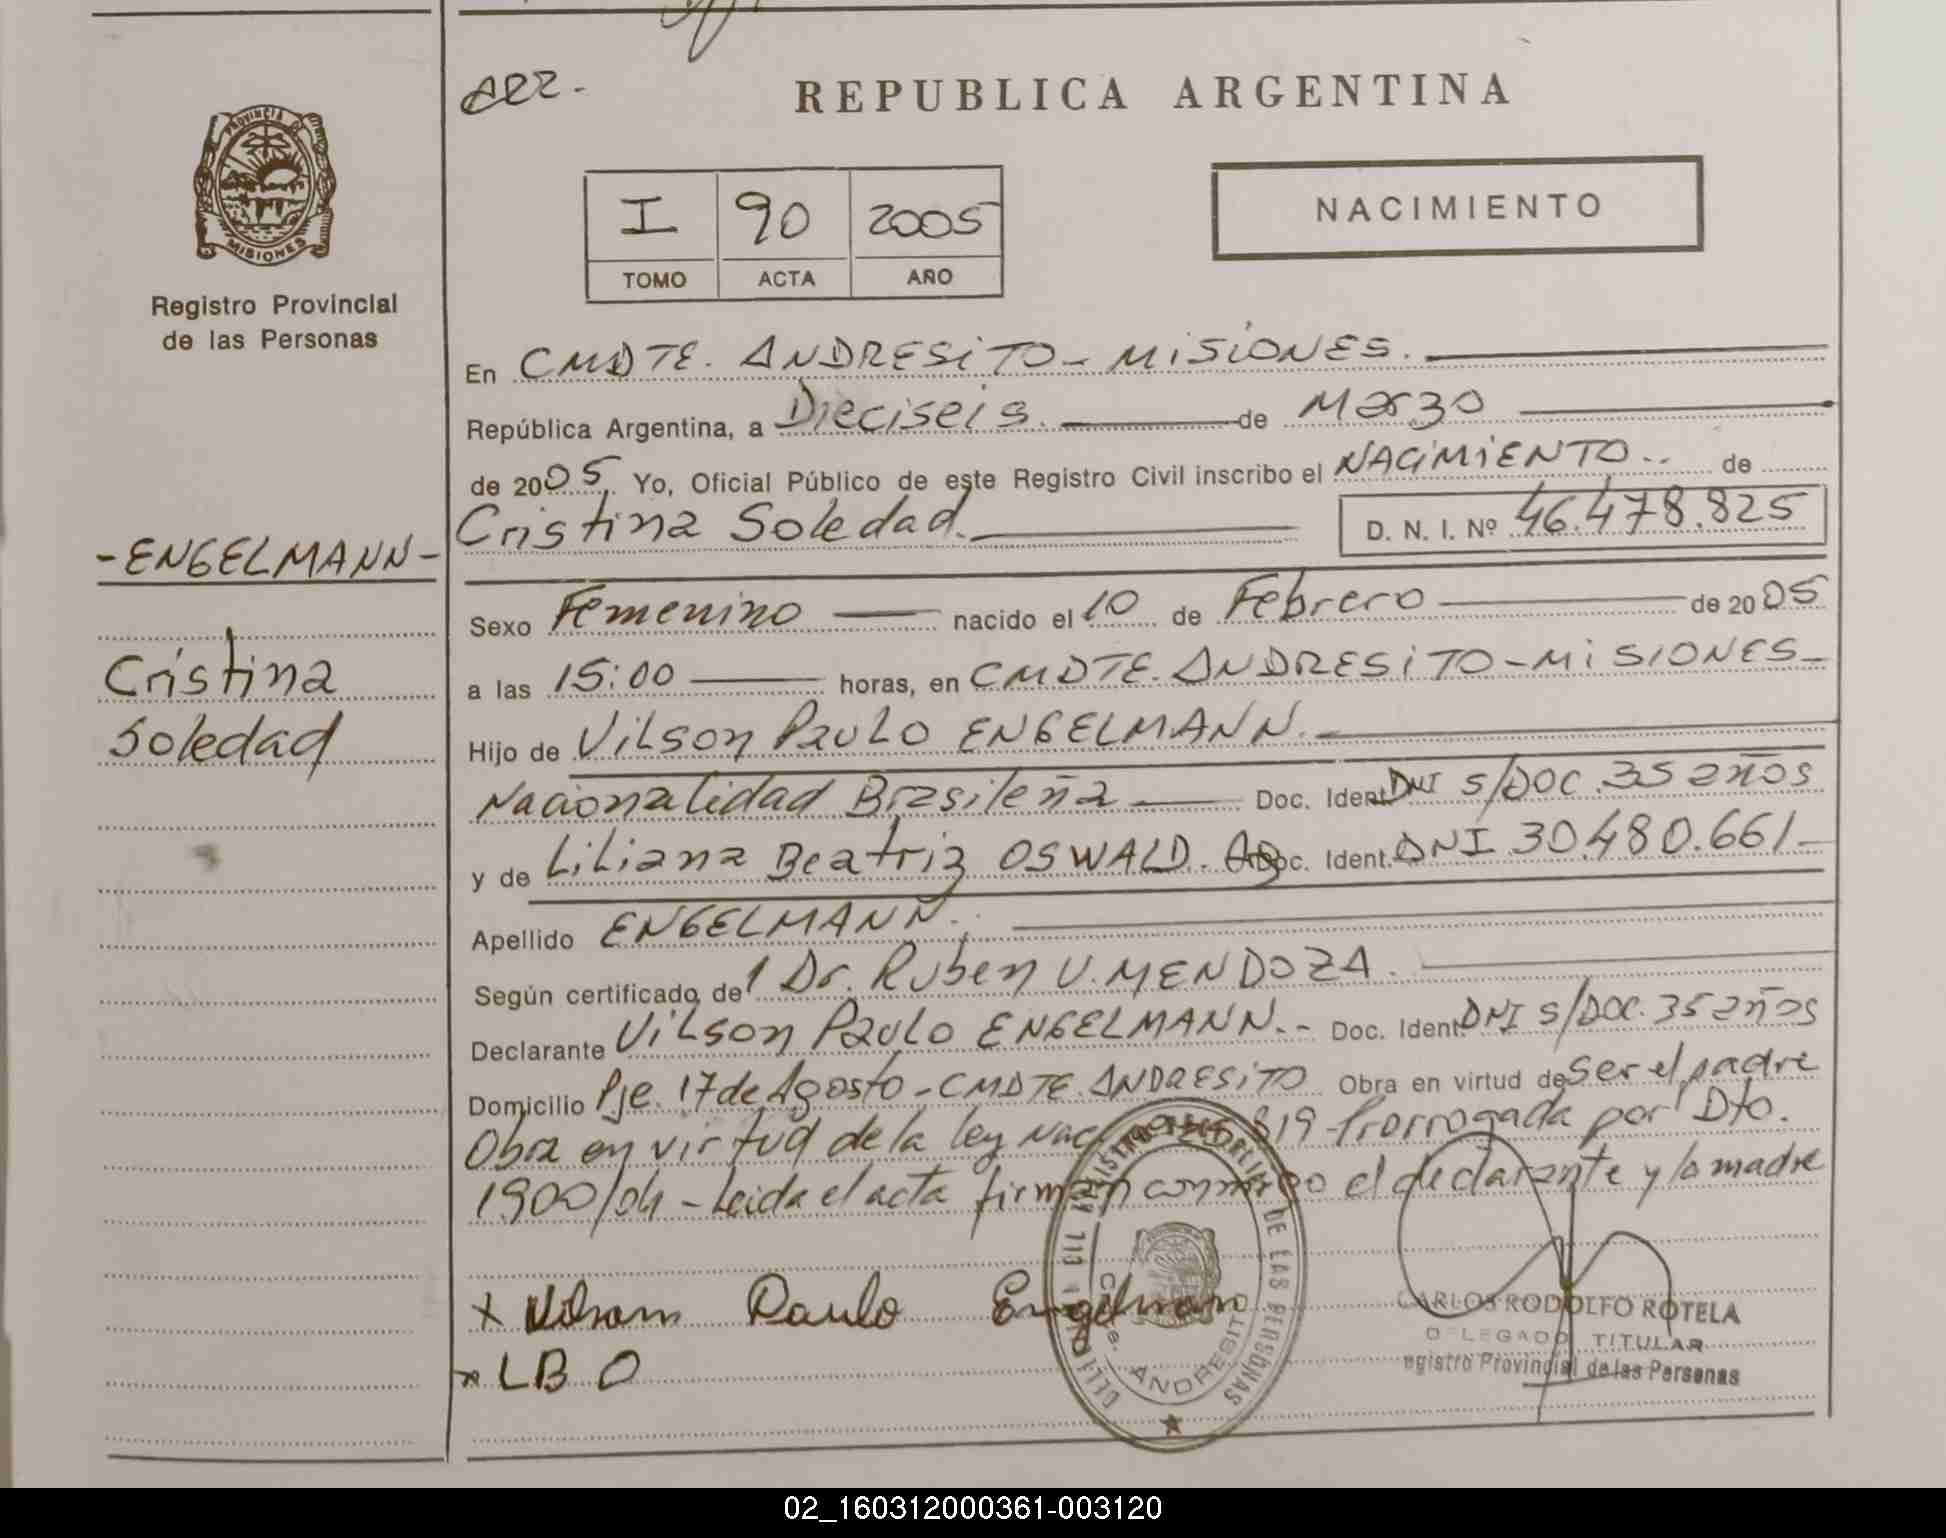 REPUBLICA ARGENTINA
I 90 2005
TOMO ACTA AÑO
NACIMIENTO
PROVINCIA DE MISIONES
Registro Provincial
de las Personas
- ENGELMANN -
Cristina
Soledad
En CMDTE. ANDRESITO - MISIONES.
República Argentina, a Dieciseis de Marzo
de 2005 Yo, Oficial Público de este Registro Civil inscribo el NACIMIENTO.. de
Cristina Soledad. D. N. I. Nº 46.478.825
Sexo Femenino nacido el 10 de Febrero de 2005
a las 15:00 horas, en CMDTE. ANDRESITO - MISIONES -
Hijo de Vilson Paulo ENGELMANN.
Nacionalidad Brasileña Doc. Ident. DNI S/DOC. 35 años
y de Liliana Beatriz OSWALD. Doc. Ident. DNI 30.480.661 -
Apellido ENGELMANN.
Según certificado de Dr. Ruben V. MENDOZA.
Declarante Vilson Paulo ENGELMANN. - Doc. Ident. DNI S/DOC. 35 años
Domicilio Pje. 17 de Agosto - CMDTE. ANDRESITO Obra en virtud de ser el padre
Obra en virtud de la ley 819 - Prorrogada por Dto.
1900/04 - Leida el acta firman conmigo el declarante y la madre
x Vilson Paulo Engelmann
x L B O
DE LAS PERSONAS
ANDRESITO
CARLOS RODOLFO ROTELA
DELEGADO TITULAR
Registro Provincial de las Personas
02_160312000361-003120